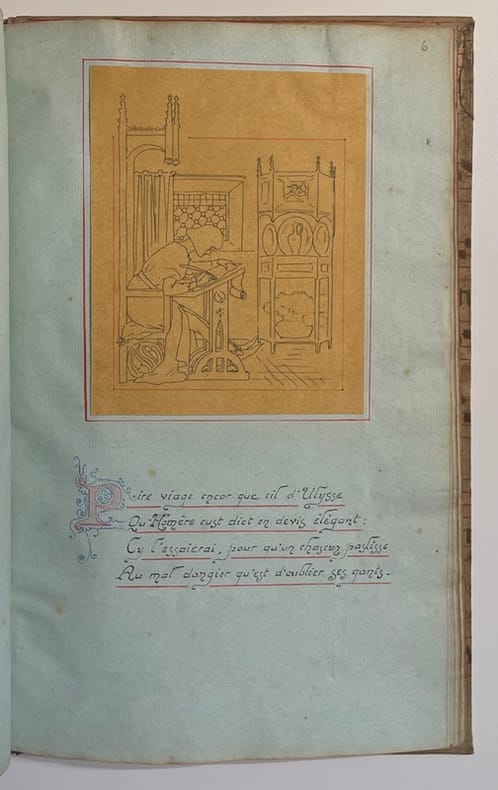 6
Pire viage encor que cil d'Ulysse
Qu'Homère eust dict en devis élégant :
Cy l'essaierai, pour qu'un chascun paslisse
Au mal dangier qu'est d'oublier ses gants.